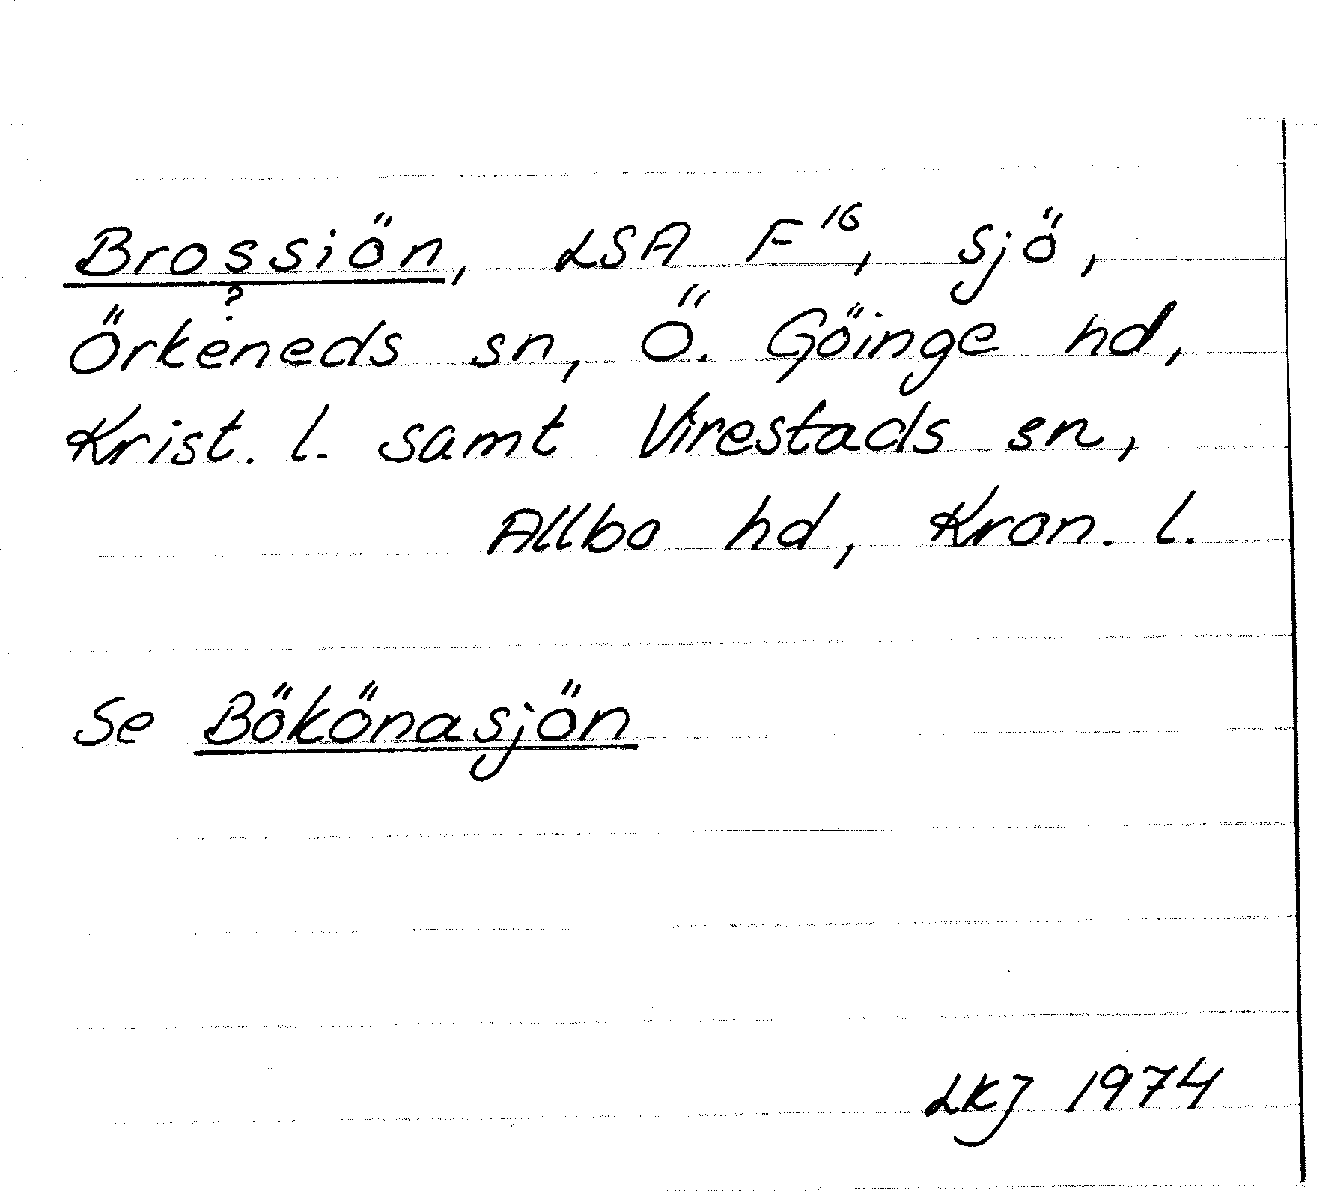 Brossiön, LSA F¹⁶, sjö,
?
Örkeneds sn, Ö. Göinge hd,
Krist. l. samt Virestads sn,
Allbo hd, Kron. l.
Se Bökönasjön
LKJ 1974